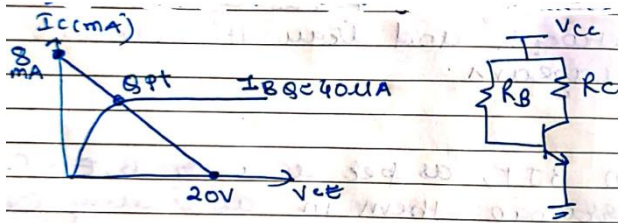 Ic(mA)
8
mA
Q pt
IBQ = 40uA
20V
VCE
Vcc
RB
Rc